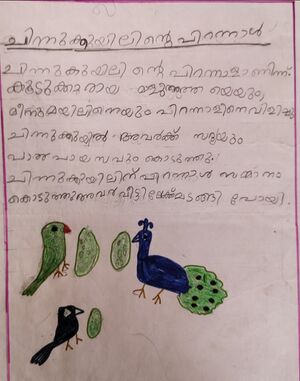 ചിന്നുകുയിലിന്റെ പിറന്നാൾ
ചിന്നുകുയിലി ന്റെ പിറന്നാളാണിന്ന്
കൂട്ടുക്കാരായ തത്തയെയും
മീനുമയിലിനെയും പിറന്നാളിനെവിളിച്ചു
ചിന്നുകുയിൽ അവർക്ക് സദ്യയും
പാൽ പായ സവും കൊടുത്തു.
ചിന്നുകുയിലിന് പിറന്നാൾ സമ്മാനം
കൊടുത്തു അവർ വീട്ടിലേക്ക് മടങ്ങി പോയി.